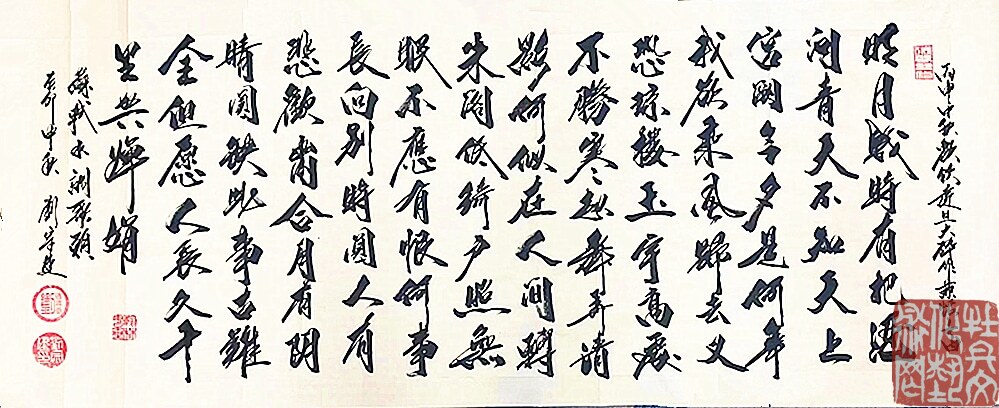 丙申中秋歡飲達旦大醉作兼懷
明月幾時有把酒
問青天不知天上
宮闕今夕是何年
我欲乘風歸去又
恐瓊樓玉宇高處
不勝寒起舞弄清
影何似在人間轉
朱閣低綺戶照無
眠不應有恨何事
長向別時圓人有
悲歡離合月有阴
晴圓缺此事古難
全但愿人長久千
里共嬋娟
蘇軾水調歌頭
中秋劉